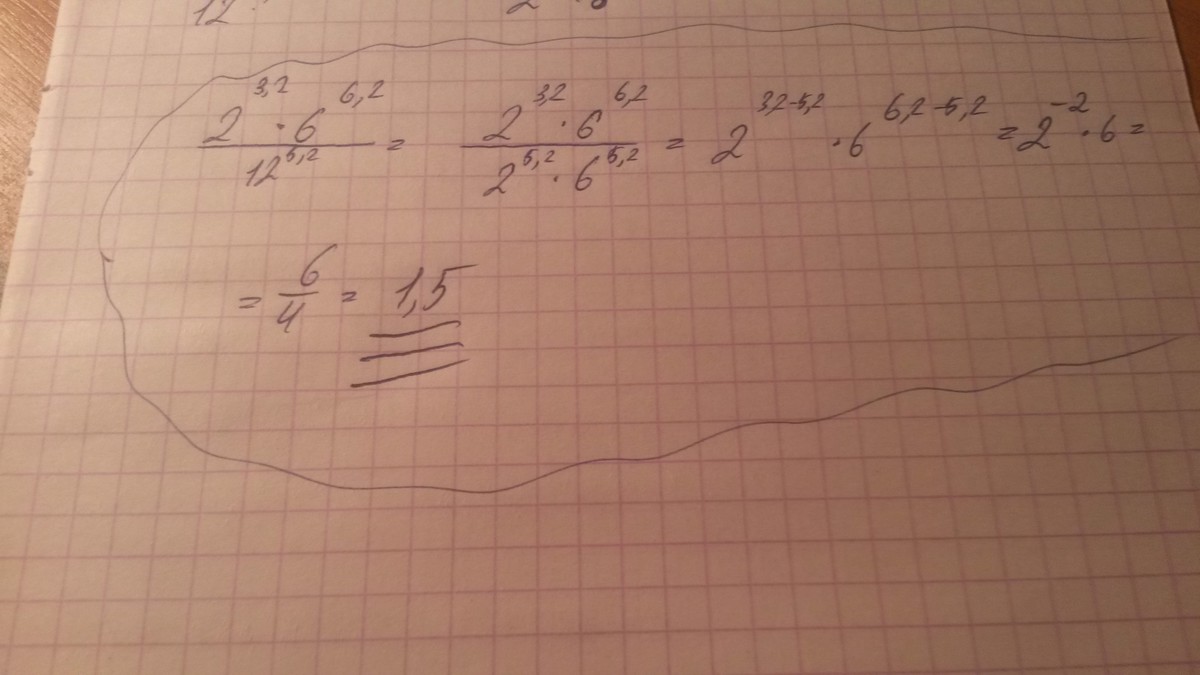 12
2^{3,2} · 6^{6,2} / 12^{5,2} = 2^{3,2} · 6^{6,2} / 2^{5,2} · 6^{5,2} = 2^{3,2-5,2} · 6^{6,2-5,2} = 2^{-2} · 6 =
= 6/4 = 1,5